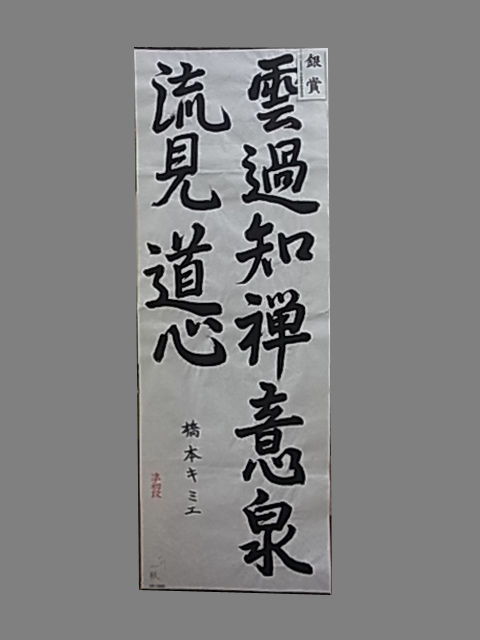 銀賞
雲過知禅意泉
流見道心
橋本キミエ
準初段